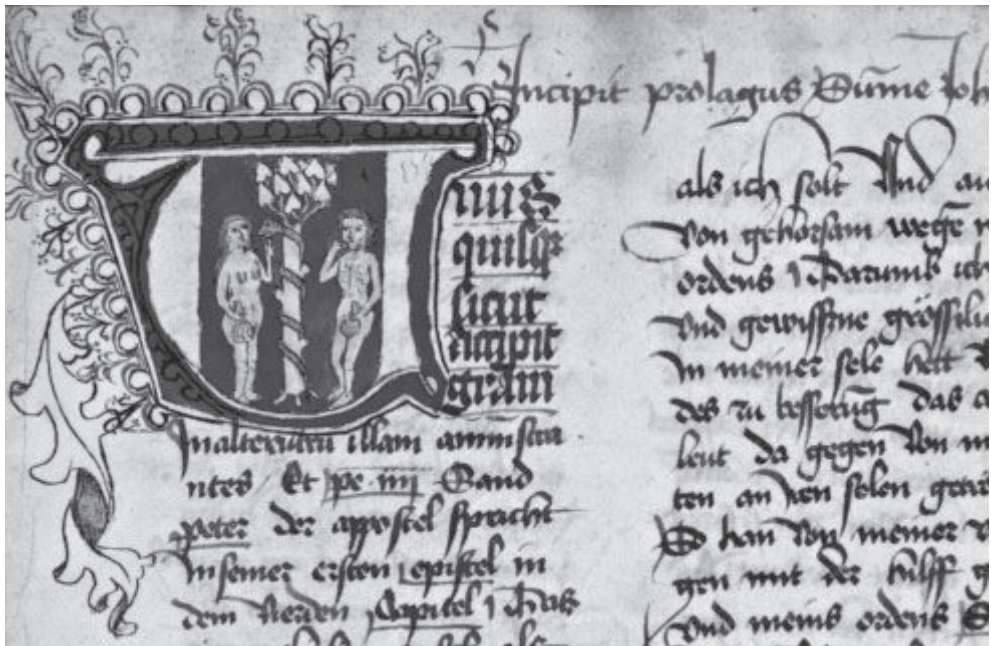 Incipit prologus Sūme Joh
nus
quisqȝ
sicut
accipit
gram
Inalterutru illam aminstra
ntes Et pe iiij Sand
peter der appostel spricht
In seiner ersten epistel in
dem vierden Capitel Das
als ich solt Vnd
von gehorsam wegē
ordens Darumb ich
vnd gewissne
In meiner sele hett
des zu besserūg das
leut da gegen von
ten an iren selen
han von meiner
gen mit der hilff
vnd meins ordens